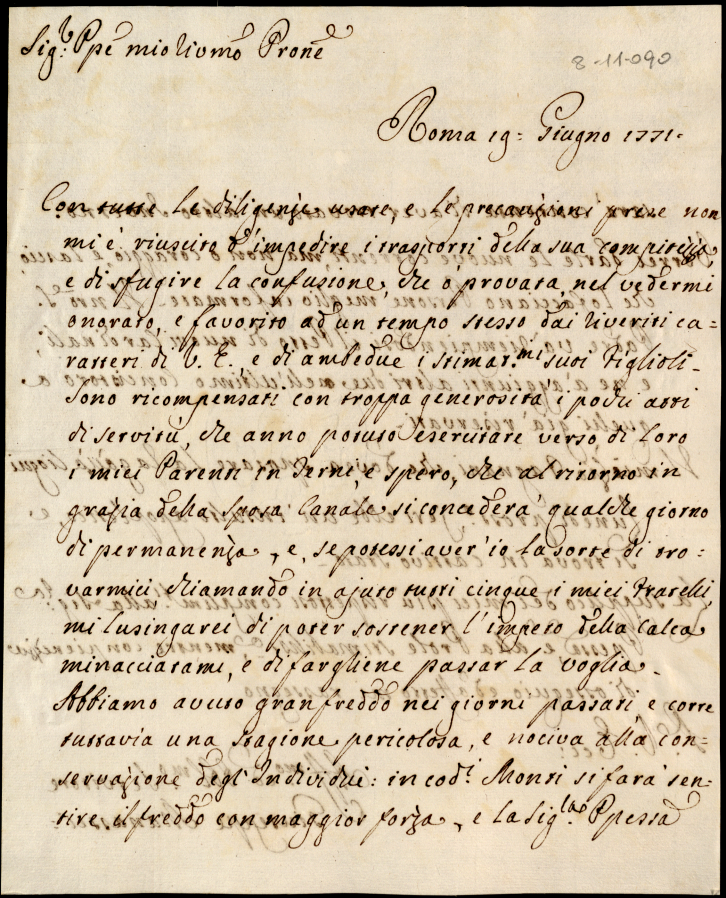 Sig.r Ppe mio rivmo Prone
8-11-090
Roma 19= Giugno 1771.
Con tutte le diligenze usate, e le precauzioni prese non
mi é riuscito d'impedire i trasporti della sua compitezza,
e di sfugire la confusione, che ó provata, nel vedermi
onorato, e favorito ad un tempo stesso dai riveriti ca=
ratteri di V. E., e di ambedue i stimar.mi suoi Figlioli.
Sono ricompensati con troppa generosità i pochi atti
di servitù, che anno potuto esercitare verso di Loro
i miei Parenti in Terni, e spero, che al ritorno in
grazia della sposa Canale si concederà qualche giorno
di permanenza, e, se potessi aver'io la sorte di tro=
varmici chiamando in ajuto tutti cinque i miei Fratelli,
mi lusingarei di poter sostener l'impeto della calca
minacciatami, e di fargliene passar la voglia.
Abbiamo avuto gran freddo nei giorni passati, e corre
tuttavia una stagione pericolosa, e nociva alla con=
servazione degl'Individui: in cod.i Monti si farà sen=
tire il freddo con maggior forza, e la Sig.ra Ppessa